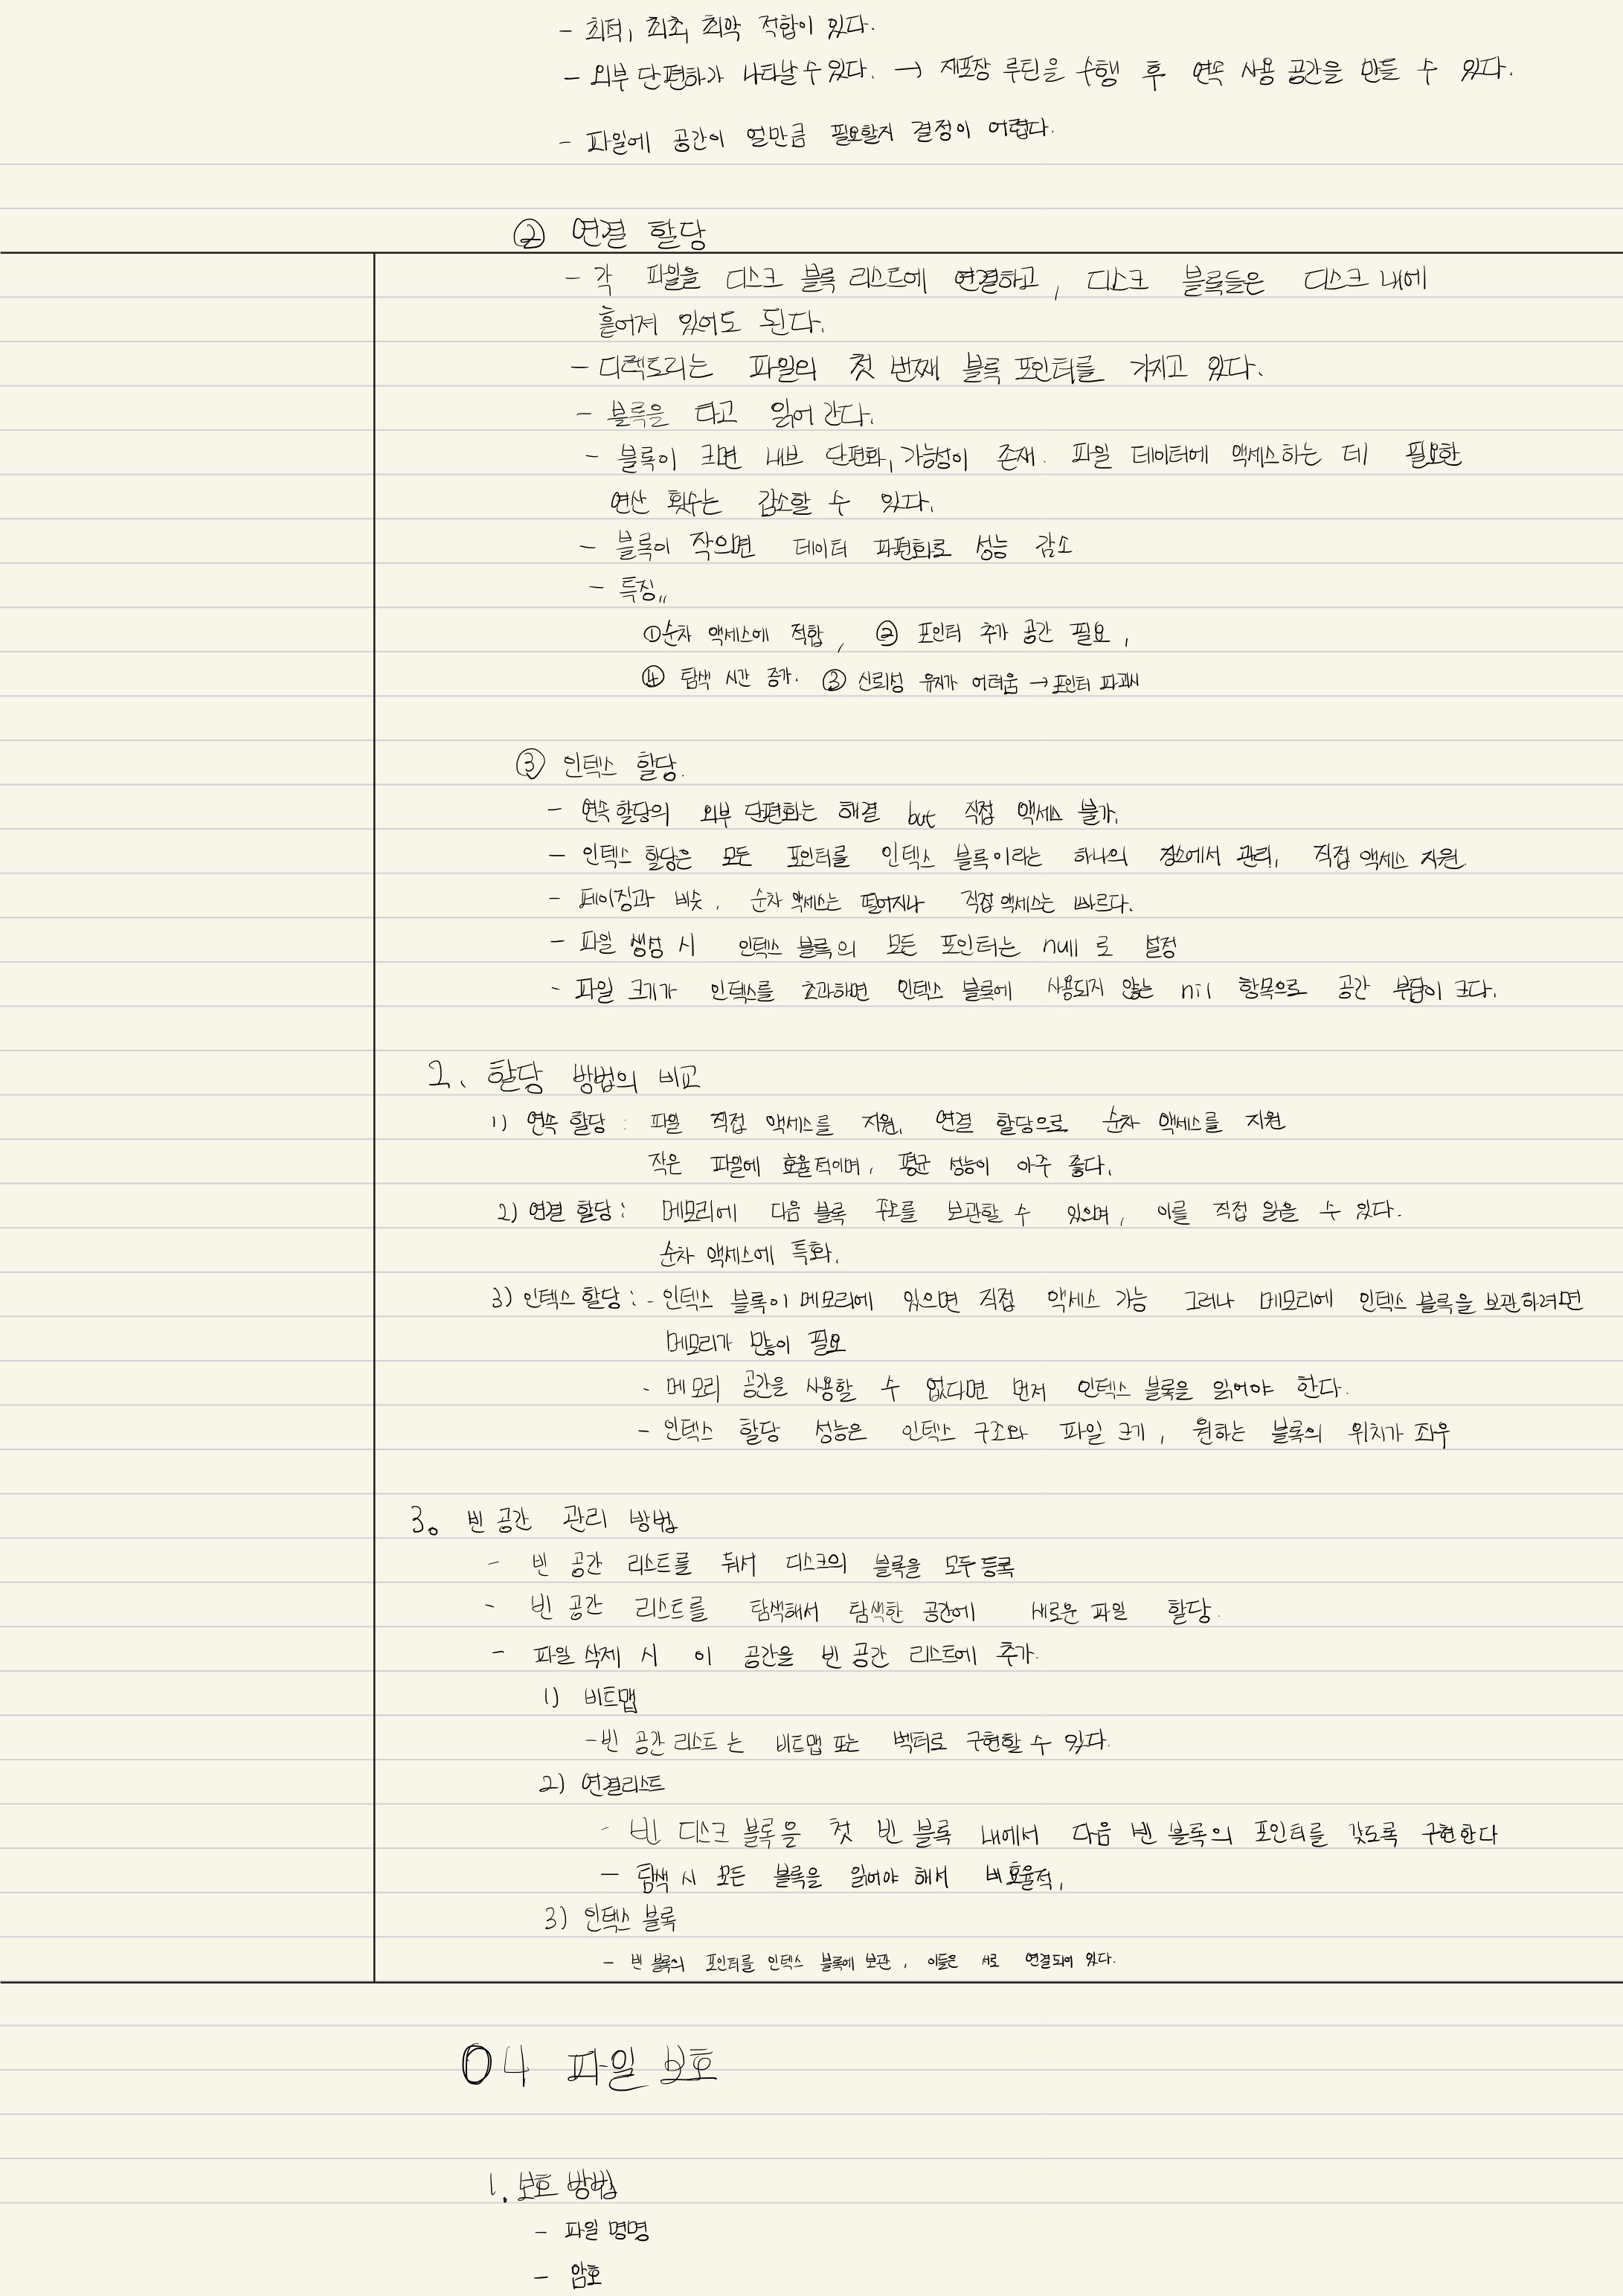 - 최적, 최초, 최악 적합이 있다.
- 외부 단편화가 나타날 수 있다. → 재포장 루틴을 수행 후 연속 사용 공간을 만들 수 있다.
- 파일에 공간이 얼만큼 필요할지 결정이 어렵다.
② 연결 할당
- 각 파일을 디스크 블록 리스트에 연결하고, 디스크 블록들은 디스크 내에
흩어져 있어도 된다.
- 디렉토리는 파일의 첫 번째 블록 포인터를 가지고 있다.
- 블록을 타고 읽어 간다.
- 블록이 크면 내부 단편화, 가능성이 존재. 파일 데이터에 액세스하는 데 필요한
연산 횟수는 감소할 수 있다.
- 블록이 작으면 데이터 파편화로 성능 감소
- 특징,,
① 순차 액세스에 적합, ② 포인터 추가 공간 필요,
④ 탐색 시간 증가. ③ 신뢰성 유지가 어려움 → 포인터 파괴시
③ 인덱스 할당.
- 연속 할당의 외부 단편화는 해결 but 직접 액세스 불가.
- 인덱스 할당은 모든 포인터를 인덱스 블록이라는 하나의 장소에서 관리, 직접 액세스 지원.
- 페이징과 비슷, 순차 액세스는 떨어지나 직접 액세스는 빠르다.
- 파일 생성 시 인덱스 블록의 모든 포인터는 null 로 설정
- 파일 크기가 인덱스를 초과하면 인덱스 블록에 사용되지 않는 nil 항목으로 공간 부담이 크다.
2. 할당 방법의 비교
1) 연속 할당 : 파일 직접 액세스를 지원, 연결 할당으로 순차 액세스를 지원
작은 파일에 효율적이며, 평균 성능이 아주 좋다.
2) 연결 할당 : 메모리에 다음 블록 주소를 보관할 수 있으며, 이를 직접 읽을 수 있다.
순차 액세스에 특화.
3) 인덱스 할당 : - 인덱스 블록이 메모리에 있으면 직접 액세스 가능 그러나 메모리에 인덱스 블록을 보관하려면
메모리가 많이 필요
- 메모리 공간을 사용할 수 없다면 먼저 인덱스 블록을 읽어야 한다.
- 인덱스 할당 성능은 인덱스 구조와 파일 크기, 원하는 블록의 위치가 좌우
3. 빈 공간 관리 방법
- 빈 공간 리스트를 둬서 디스크의 블록을 모두 등록
- 빈 공간 리스트를 탐색해서 탐색한 공간에 새로운 파일 할당.
- 파일 삭제 시 이 공간을 빈 공간 리스트에 추가.
1) 비트맵
- 빈 공간 리스트는 비트맵 또는 벡터로 구현할 수 있다.
2) 연결리스트
- 빈 디스크 블록을 첫 빈 블록 내에서 다음 빈 블록의 포인터를 갖도록 구현한다
- 탐색 시 모든 블록을 읽어야 해서 비효율적.
3) 인덱스 블록
- 빈 블록의 포인터를 인덱스 블록에 보관, 이들은 서로 연결되어 있다.
04 파일 보호
1. 보호 방법
- 파일 명명
- 암호